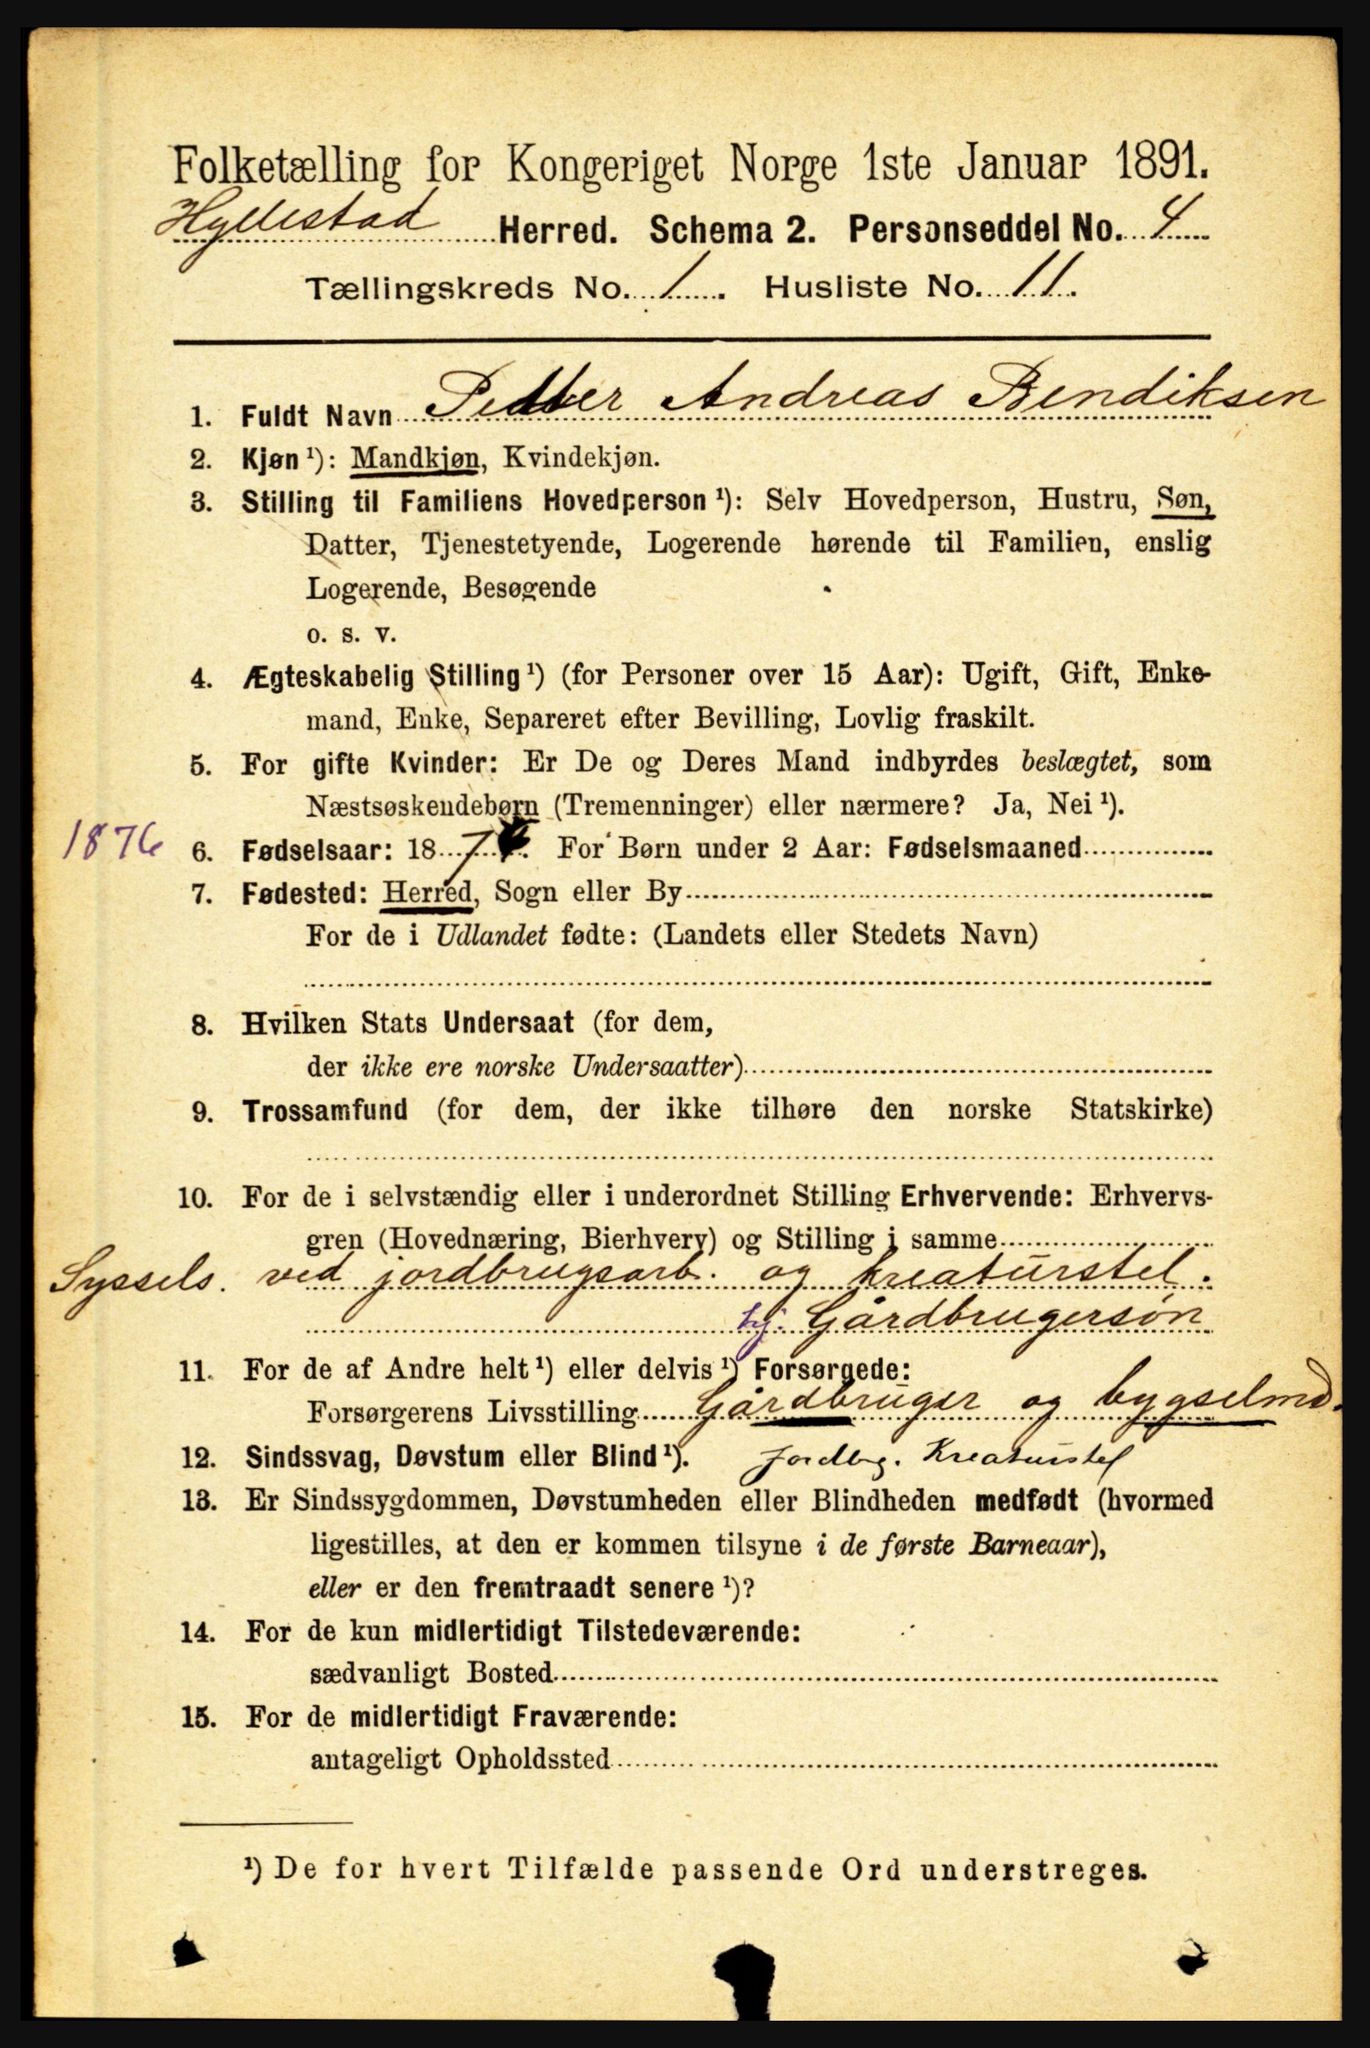 Folketælling for Kongeriget Norge 1ste Januar 1891.
Hyllestad Herred. Schema 2. Personseddel No. 4
Tællingskreds No. 1. Husliste No. 11.
1. Fuldt Navn Petter Andreas Bendiksen
2. Kjøn ¹): Mandkjøn, Kvindekjøn.
3. Stilling til Familiens Hovedperson ¹): Selv Hovedperson, Hustru, Søn,
Datter, Tjenestetyende, Logerende hørende til Familien, enslig
Logerende, Besøgende
o. s. v.
4. Ægteskabelig Stilling ¹) (for Personer over 15 Aar): Ugift, Gift, Enke-
mand, Enke, Separeret efter Bevilling, Lovlig fraskilt.
5. For gifte Kvinder: Er De og Deres Mand indbyrdes beslægtet, som
Næstsøskendebørn (Tremenninger) eller nærmere? Ja, Nei ¹).
1876 6. Fødselsaar: 187. For Børn under 2 Aar: Fødselsmaaned
7. Fødested: Herred, Sogn eller By
For de i Udlandet fødte: (Landets eller Stedets Navn)
8. Hvilken Stats Undersaat (for dem,
der ikke ere norske Undersaatter)
9. Trossamfund (for dem, der ikke tilhøre den norske Statskirke)
10. For de i selvstændig eller i underordnet Stilling Erhvervende: Erhvervs-
gren (Hovednæring, Bierhverv) og Stilling i samme
Syssels. ved jordbrugsarb. og kreaturstel.
hj. Gårdbrugersøn
11. For de af Andre helt ¹) eller delvis ¹) Forsørgede:
Forsørgerens Livsstilling Gårdbruger og bygselmd.
12. Sindssvag, Døvstum eller Blind ¹). Jordbg. Kreaturstel
13. Er Sindssygdommen, Døvstumheden eller Blindheden medfødt (hvormed
ligestilles, at den er kommen tilsyne i de første Barneaar),
eller er den fremtraadt senere ¹)?
14. For de kun midlertidigt Tilstedeværende:
sædvanligt Bosted
15. For de midlertidigt Fraværende:
antageligt Opholdssted
¹) De for hvert Tilfælde passende Ord understreges.